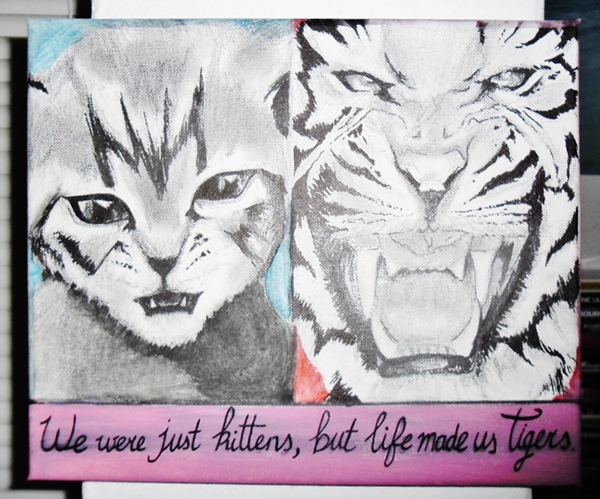 We were just kittens, but life made us Tigers.